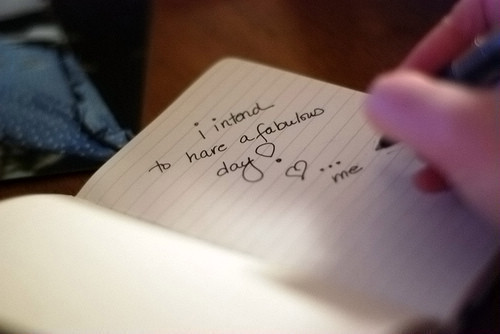 i intend
to have a fabulous
day♡.
♡ ... me